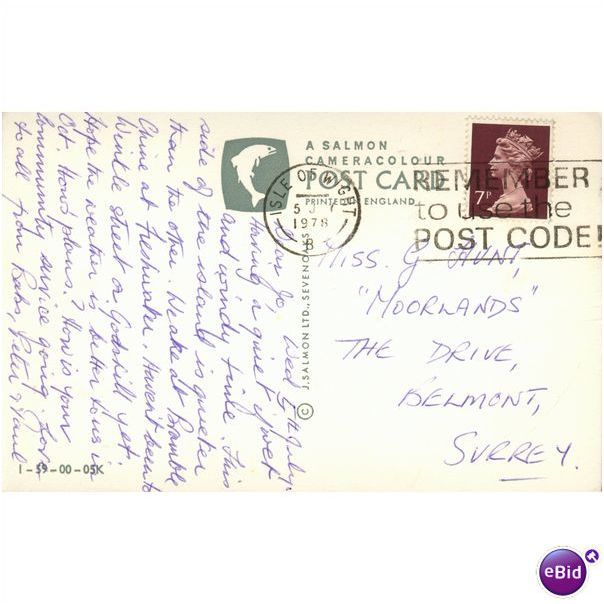 A SALMON
CAMERACOLOUR
POST CARD
PRINTED IN ENGLAND
ISLE OF WIGHT
5 JY
1978
B
7P
REMEMBER
to use the
POST CODE!
© J. SALMON LTD., SEVENOAKS
Wed 5th July
Dear Jo,
Having a quiet, wet
and windy time. This
side of the island is quieter
than the other. We are at Bramble
Chine at Freshwater. Haven't been to
Winkle Street or Godshill yet.
Hope the weather is better for us in
Oct. Hows plans? How is your
Community service going. Love
to all from Babs, Peter & Paul
MISS. G HUNT,
"MOORLANDS"
THE DRIVE,
BELMONT,
SURREY.
1-59-00-05K
eBid